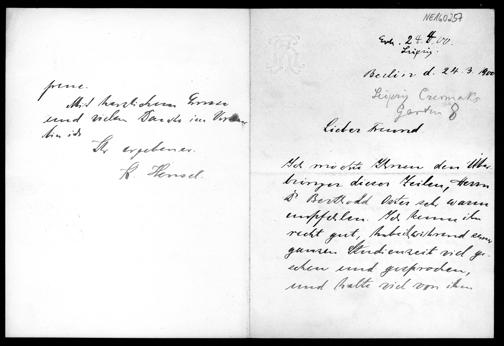 NE160257
24.4.00.
Leipzig.
Berlin d. 24.3.1900
Leipzig Czermaks
Garten 8
Lieber Freund
Ich möchte Ihnen den Über
bringer dieser Zeilen, Herrn
Dr Berthold Oster sehr warm
empfehlen. Ich kenne ihn
recht gut, habe während seiner
ganzen Studienzeit viel ge-
sehen und gesprochen,
und halte viel von ihm
freue.
Mit herzlichem Grusse
und vielem Danke im Voraus
bin ich
Ihr ergebener
K Hensel.